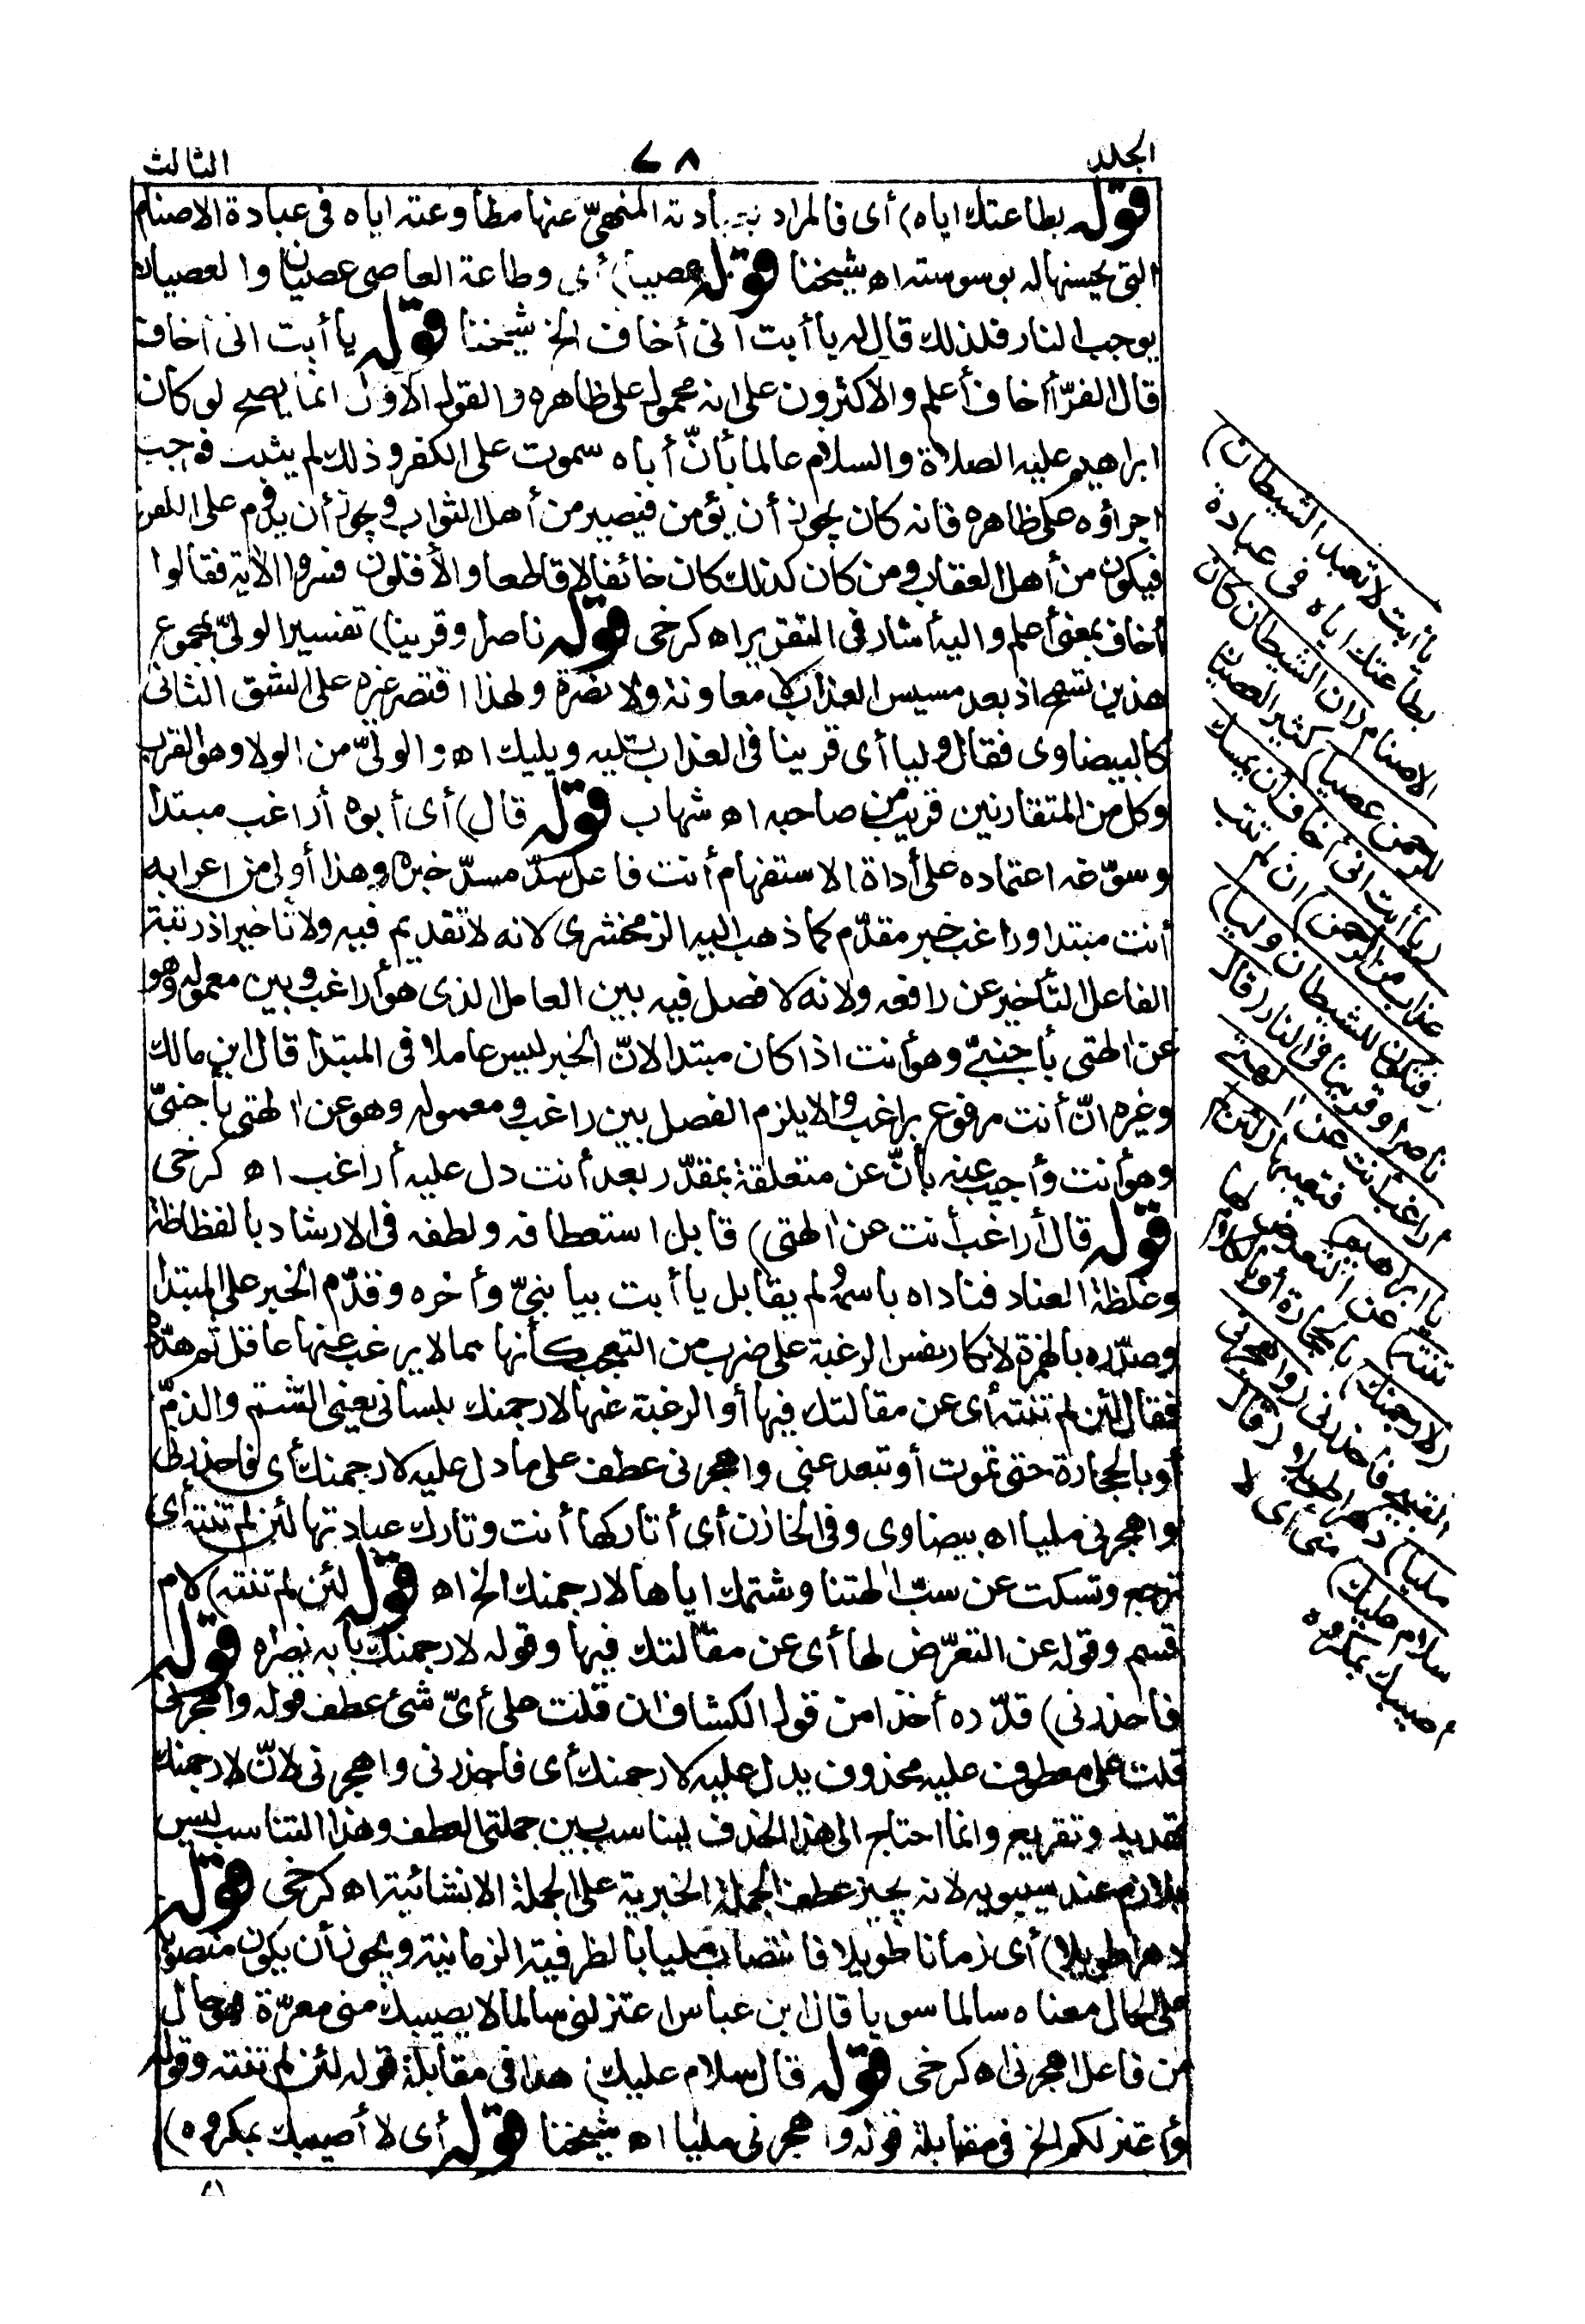 الجلد ٧٨ الثالث
قوله بطاعتك اياه) أى فالمراد بعبادته المنهىّ عنها مطاوعته اياه فى عبادة الاصنام
التى يحسنها له بوسوسته اه شيخنا قوله عصيا) أى وطاعة العاصى عصيان والعصيان
يوجب النار فلذلك قال له يا أبت انى أخاف الخ شيخنا قوله يا أبت انى أخاف
قال الفرّاء أخاف أعلم والأكثرون على انه محمول على ظاهره والقول الاول انما يصح لو كان
ابراهيم عليه الصلاة والسلام عالما بأنّ أباه سموت على الكفر وذلك لم يثبت فوجب
اجراؤه على ظاهره فانه كان يجوز أن يؤمن فيصير من أهل الثواب ويجوز أن يدوم على الكفر
فيكون من أهل العقاب ومن كان كذلك كان خائفا لا قاطعا والأقلون فسروا الآية فقالوا
أخاف بمعنى أعلم واليه أشار فى التقرير اه كرخى قوله ناصرا وقرينا) تفسير الولىّ بمجموع
هذين تسمح اذ بعد مسيس العذاب لا معاونة ولا نصرة ولهذا اقتصر غيره على الشق الثانى
كالبيضاوى فقال وليا أى قرينا فى العذاب تليه ويليك اه والولىّ من الولا وهو القرب
وكل من المتقارنين قريب من صاحبه اه شهاب قوله قال) أى أبوه أراغب مبتدا
وسوّغه اعتماده على أداة الاستفهام أنت فاعل سدّ مسدّ خبره وهذا أولى من اعرابه
أنت مبتدا وراغب خبر مقدّم كما ذهب اليه الزمخشرى لانه لا تقديم فيه ولا تأخير اذ رتبة
الفاعل التأخير عن رافعه ولانه لا فصل فيه بين العامل الذى هو أراغب وبين معموله وهو
عن الهتى بأجنبىّ وهو أنت اذا كان مبتدا لانّ الخبر ليس عاملا فى المبتدا قال ابن مالك
وغيره انّ أنت مرفوع براغب والا يلزم الفصل بين راغب ومعموله وهو عن الهتى بأجنبىّ
وهو أنت وأجيب عنه بأنّ عن متعلقة بمقدّر بعد أنت دل عليه أراغب اه كرخى
قوله قال أراغب أنت عن الهتى) قابل استعطافه ولطفه فى الارشاد بالفظاظة
وغلظة العناد فناداه باسمه ولم يقابل يا أبت بيا بنىّ وأخره وقدّم الخبر على المبتدا
وصدّره بالهمزة لانكار نفس الرغبة على ضرب من التعجب كأنها مما لا يرغب عنها عاقل ثم هدّده
فقال لئن لم تنته أى عن مقالتك فيها أو الرغبة عنها لارجمنك بلسانى يعنى الشتم والذمّ
أو بالحجارة حتى تموت أو تبعد عنى واهجرنى عطف على ما دل عليه لارجمنك أى فاحذرنى
واهجرنى مليا اه بيضاوى وفى الخازن أى أتاركها أنت وتارك عبادتها لئن لم تنته أى
ترجع وتسكت عن سبّ الهتنا وشتمك اياها لارجمنك الخ اه قوله لئن لم تنته) لام
قسم وقوله عن التعرّض لها أى عن مقالتك فيها وقوله لارجمنك بابه نصر اه قوله
فاحذرنى) قدّره أخذا من قول الكشاف ان قلت على أىّ شئ عطف قوله واهجرنى
قلت على معطوف عليه محذوف يدل عليه لارجمنك أى فاحذرنى واهجرنى لانّ لارجمنك
تهديد وتقريع وانما احتاج الى هذا الحذف ليناسب بين جملتى العطف وهذا التناسب ليس
بلازم عند سيبويه لانه يجيز عطف الجملة الخبرية على الجملة الانشائية اه كرخى قوله
دهرا طويلا) أى زمانا طويلا فانتصاب مليا بالظرفية الزمانية ويجوز أن يكون منصوبا
على الحال معناه سالما سويا قال ابن عباس اعتزلنى سالما لا يصيبك منى معرّة فهو حال
من فاعل اهجرنى اه كرخى قوله قال سلام عليك) هذا فى مقابلة قوله لئن لم تنته وقوله
وأعتزلكم الخ فى مقابلة قوله واهجرنى مليا اه شيخنا قوله أى لا أصيبك بمكروه)
يا أبت لا تعبد الشيطان)
بطاعتك اياه فى عبادة
الاصنام (ان الشيطان كان
للرحمن عصيا) كثير العصيان
(يا أبت انى أخاف أن يمسك
عذاب من الرحمن) ان لم تتب
(فتكون للشيطان وليا)
ناصرا وقرينا فى النار (قال
أراغب أنت عن الهتى
يا ابراهيم) فتعيبها (لئن لم
تنته) عن التعرض لها
(لارجمنك) بالحجارة أو بالكلام
القبيح فاحذرنى (واهجرنى
مليا) دهرا طويلا (قال
سلام عليك) منى أى لا
أصيبك بمكروه